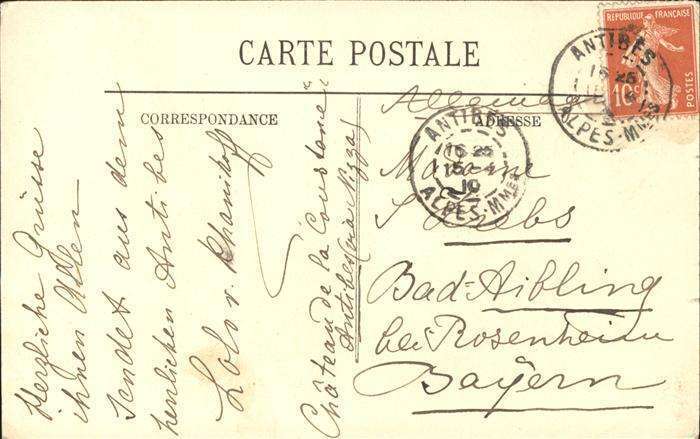 CARTE POSTALE
CORRESPONDANCE
ADRESSE
RÉPUBLIQUE FRANÇAISE
10c
POSTES
ANTIBES
16 25
ALPES-MMES
ANTIBES
16 25
15 - 4
10
ALPES-MMES
Herzliche Grüsse
ihnen Allen
sendet aus dem
herrlichen Antibes
Lolo v. Khanikoff
Château de la Constance
Antibes (near Nizza)
Allemagne
Madame
Bad-Aibling
bei Rosenheim
Bayern